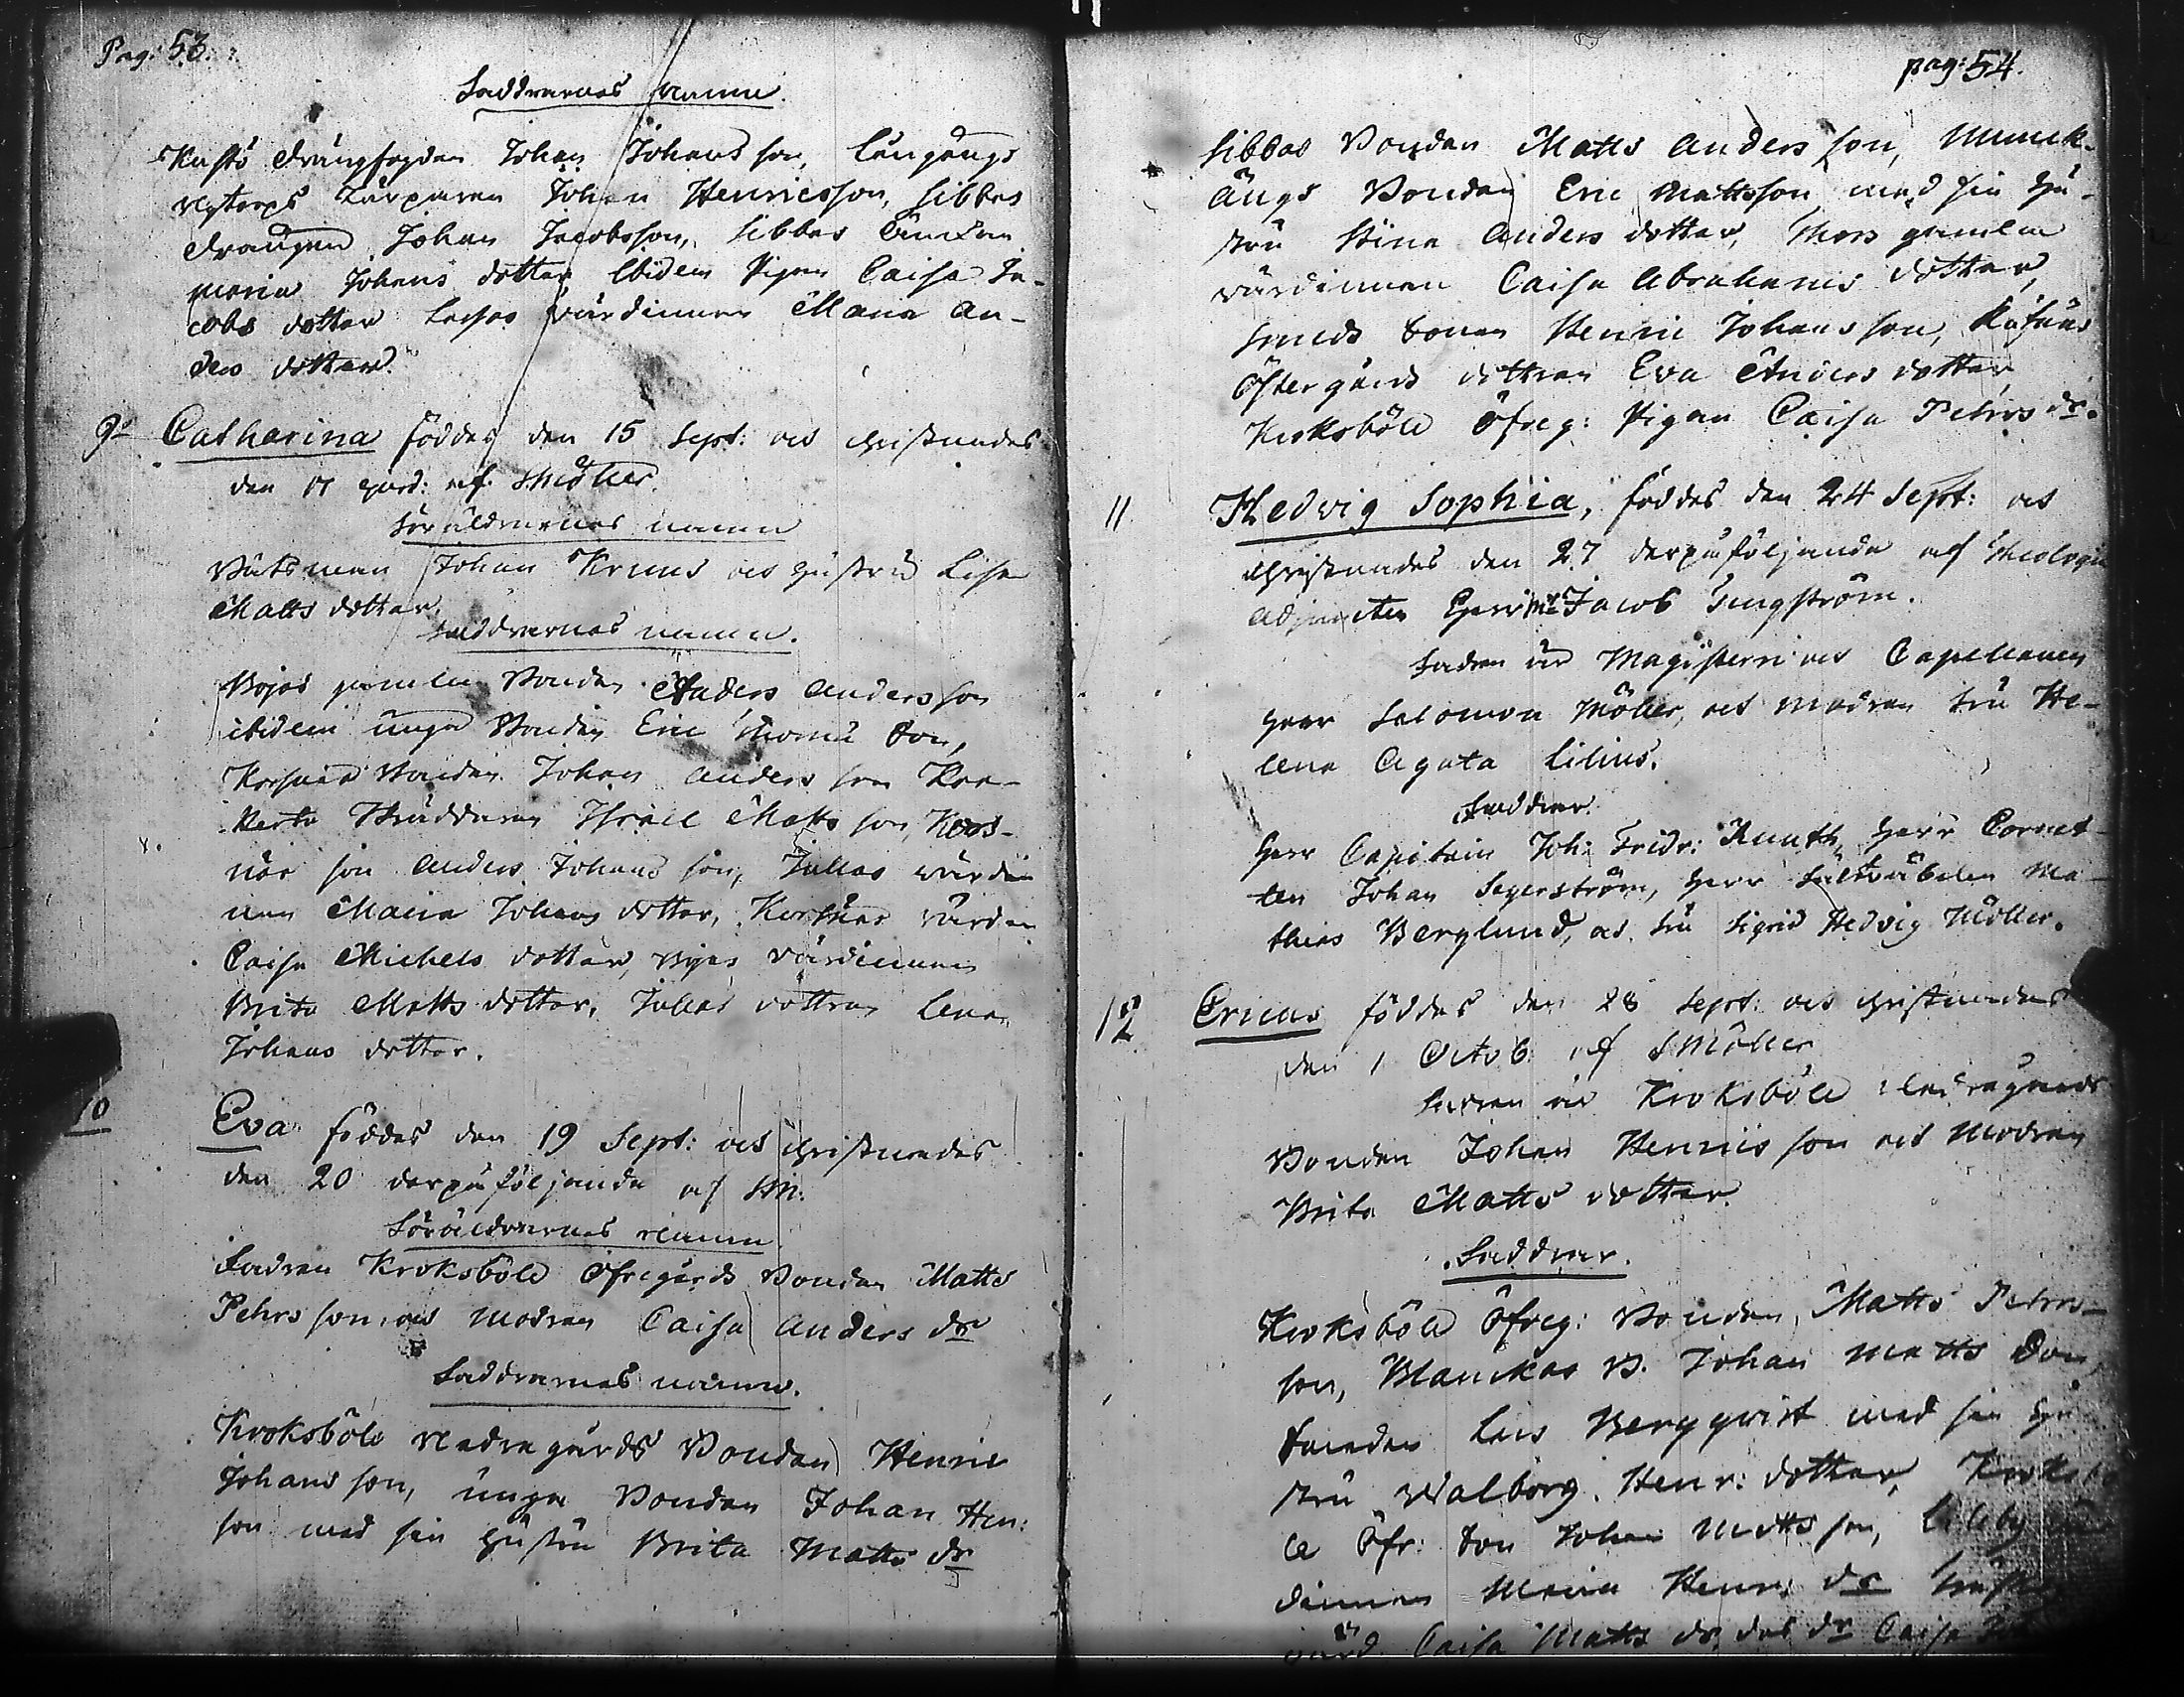 Pag: 53.
Faddrarnes namn.
Kustö Drängfogden Johan Johansson, Långängs
nytorps Torparen Johan Henricsson, Sibbes
Drängen Johan Jacobsson, Sibbes Enkan
Maria Johans dotter Ibidem Pigan Caisa Ja-
cobs dotter Lassas värdinnan Maria An-
ders dotter.
9. Catharina föddes den 15 Sept: och christnades
den 17 ejusd: af SMöller.
Föräldrarnes namn
Båtsman Johan Kruus och hustru Lisa
Matts dotter.
Faddrarnes namn.
Böjas gamla Bonden Anders Andersson
ibidem unga Bonden Eric Thomæ Son,
Korsnäs Bonden Johan Anders son
Skräddaren Israel Matts son, Kors-
näs son Anders Johans son, Jullas värdin
nan Maria Johans dotter, Korsnäs värdin
Caisa Michels dotter, Böjas värdinnan
Brita Matts dotter, Jullas dottren Lena
Johans dotter.
10 Eva föddes den 19 Sept: och christnades
den 20 derpåföljande af SM:
Föräldrarnes namn.
Fadren Kroksböle Öfregårds Bonden Matts
Pehrs son, och Modren Caisa Anders dr
Faddrarnes namn.
Kroksböle Nedregårds Bonden Henric
Johans son, unga Bonden Johan Hen:
son med sin hustru Brita Matts dr
pag: 54.
Sibbas Bonden Matts Anders son, Munck-
ängs Bonden Eric Mattsson med sin hu-
stru Stina Anders dotter, Thors gamla
värdinnan Caisa Abrahams dotter,
Smeds sonen Henric Johans son,
Östergårds dottren Eva Anders dotter
Kroksböle Öfreg: Pigan Caisa Pehrs dr.
11 Hedvig Sophia, föddes den 24 Sept: och
christnades den 27 derpåföljande af Theologiæ
Adjuncten Herr Mr Jacob Tengström.
Fadren är Magistern och Capellanen
Herr Salomon Möller, och modren Fru He-
lena Agata Lilius.
Faddrar.
Herr Capitain Joh: Fridr: Knuth, Herr Cornet-
ten Johan Segerström, Herr Fältväbelen Ma-
thias Berglund, och Fru Sigrid Hedvig Möller.
12 Ericus föddes den 28 Sept: och christnades
den 1 Octob: af SMöller
Fadren är Kroksböle Nedregårds
Bonden Johan Henrics son och Modren
Brita Matts dotter.
Faddrar.
Kroksböle Öfreg: Bonden, Matts Pehrs-
son, Blanckas B. Johan Matts Son,
Smeden Lars Bergqvist med sin hu
stru Walborg Henr: dotter, Kroksbö
le Öfr: Son Johan Matts son, Lillby vär
dinnan Maria Henr: dr
värd. Caisa Matts dr, dess dr Caisa